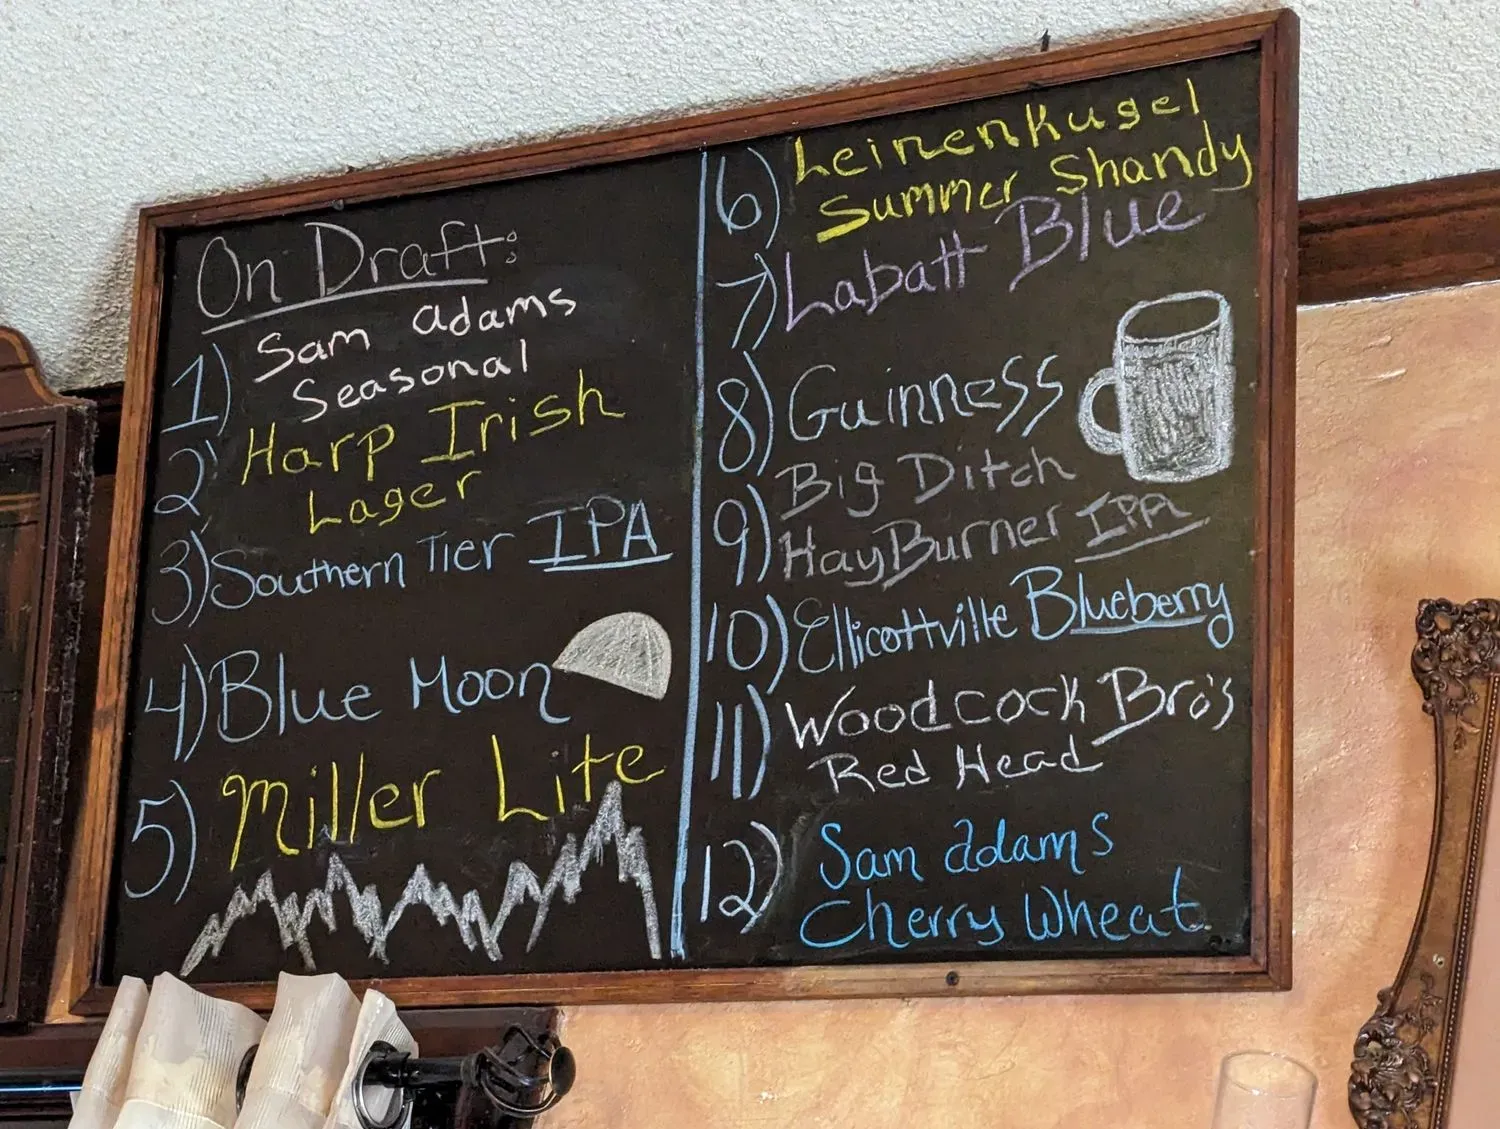 On Draft:
1) Sam Adams
Seasonal
2) Harp Irish
Lager
3) Southern Tier IPA
4) Blue Moon
5) Miller Lite
6) Leinenkugel
Summer Shandy
7) Labatt Blue
8) Guinness
9) Big Ditch
HayBurner IPA
10) Ellicottville Blueberry
11) Woodcock Bro's
Red Head
12) Sam Adams
Cherry Wheat